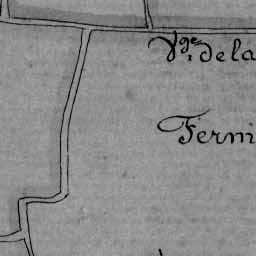 Vge de la
Ferni